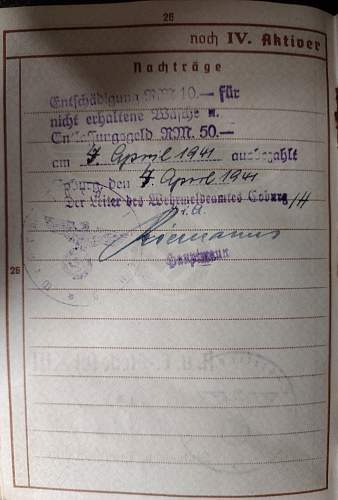 26
noch IV. Aktiver
Nachträge
Entschädigung RM 10.— für
nicht erhaltene Wäsche u.
Entlassungsgeld RM. 50.—
am 7. April 1941 ausbezahlt
Coburg, den 7. April 1941
Der Leiter des Wehrmeldeamtes Coburg
Hauptmann
26